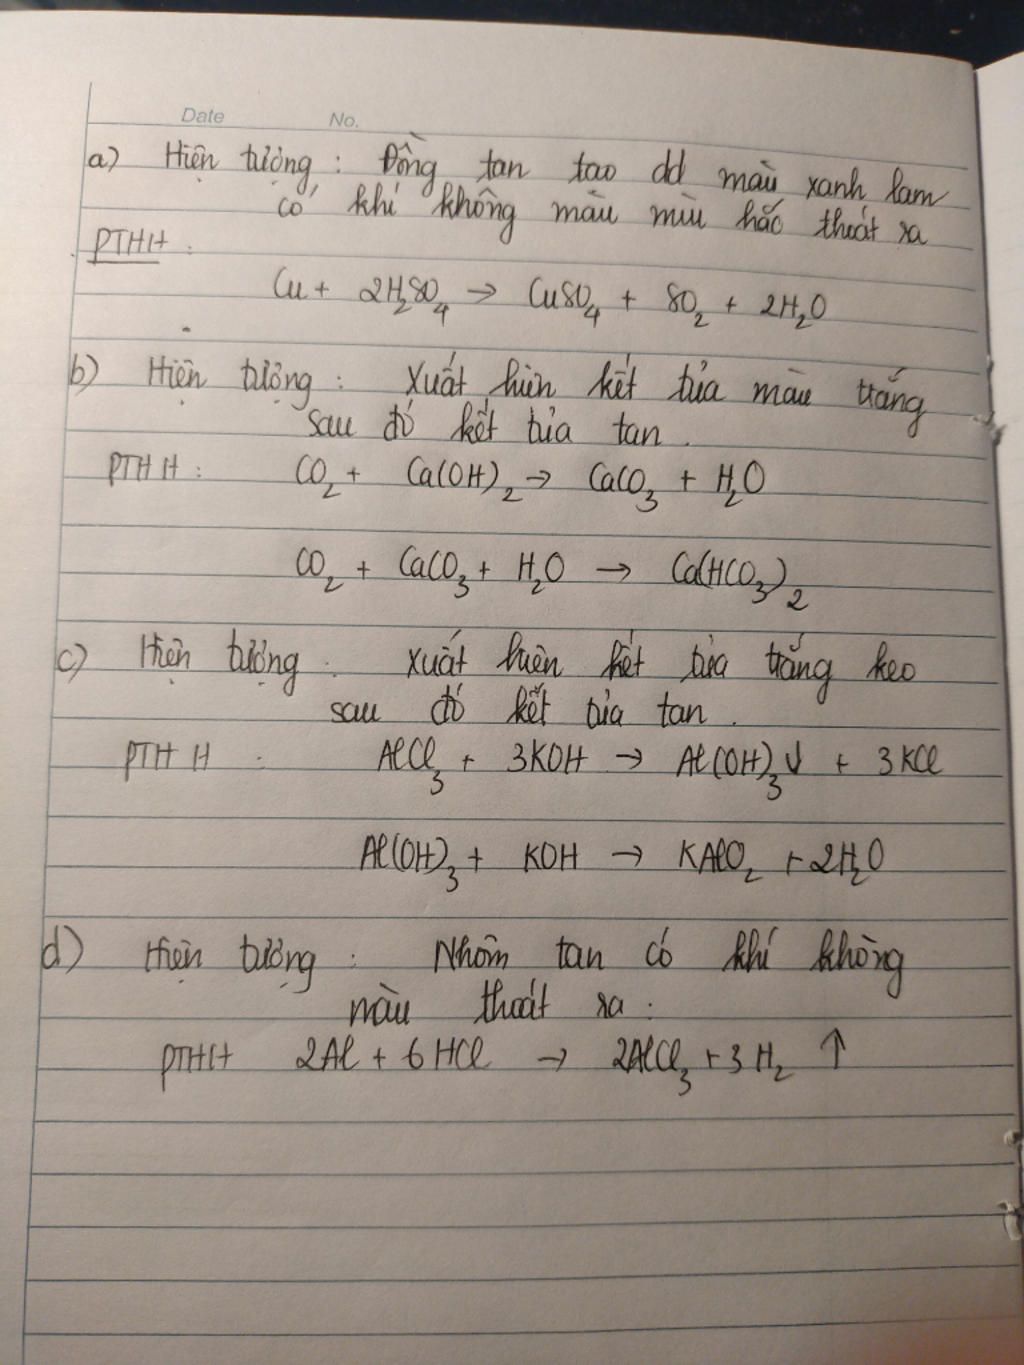 Date No.
a) Hiện tượng : Đồng tan tạo dd màu xanh lam
có khí không màu mùi hắc thoát ra
PTHH :
Cu + 2H₂SO₄ → CuSO₄ + SO₂ + 2H₂O
b) Hiện tượng : Xuất hiện kết tủa màu trắng
sau đó kết tủa tan .
PTHH : CO₂ + Ca(OH)₂ → CaCO₃ + H₂O
CO₂ + CaCO₃ + H₂O → Ca(HCO₃)₂
c) Hiện tượng : Xuất hiện kết tủa trắng keo
sau đó kết tủa tan .
PTHH : AlCl₃ + 3KOH → Al(OH)₃↓ + 3KCl
Al(OH)₃ + KOH → KAlO₂ + 2H₂O
d) Hiện tượng : Nhôm tan có khí không
màu thoát ra :
PTHH 2Al + 6HCl → 2AlCl₃ + 3H₂ ↑